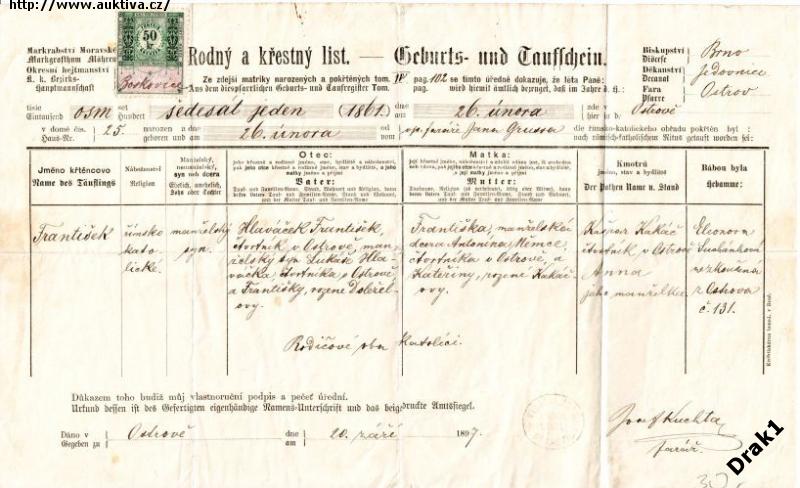 http://www.auktiva.cz/
Markrabství Moravské
Markgrafthum Mähren
Okresní hejtmanství
K. k. Bezirks-
Hauptmannschaft
50
kr
Boskovice
Rodný a křestný list. — Geburts- und Taufschein.
Ze zdejší matriky narozených a pokřtěných tom. IV pag. 102 se tímto úředně dokazuje, že léta Páně:
Aus dem diespfarrlichen Geburts- und Taufregister Tom. pag. wird hiemit ämtlich bezeugt, daß im Jahre d. H.:
Biskupství
Diöcese
Brno
Děkanství
Decanat
Jedovnice
Fara
Pfarre
Ostrov
tisíc
Eintausend
osm
set
Hundert
šedesát jeden (1861)
dne
am
26. února
zde v
hier in d.
Ostrově
v domě čís.
Haus-Nr.
25.
narozen a dne
geboren und am
26. února
od
von
dp. faráře Jana Grussa
dle římsko-katolického obřadu pokřtěn byl:
nach römisch-katholischem Ritus getauft worden sei:
Jméno křtěncovo
Name des Täuflings
Náboženství
Religion
Manželský,
nemanželský,
syn neb dcera
Ehelich, unehelich,
Sohn oder Tochter
Otec:
jeho křestné a rodinné jméno, stav, bydliště a náboženství,
Vater:
Matka:
Mutter:
Kmotrů
jméno, stav a bydliště
Der Pathen Name u. Stand
Bábou byla
Hebamme:
František
římsko
kato-
lické.
manželský
syn.
Hlaváček František,
čtvrtník v Ostrově, man-
želský syn Lukáše Hla-
váčka, čtvrtníka v Ostrově
a Františky, rozené Doležel-
ovy.
Františka, manželská
dcera Antonína Němce,
čtvrtníka v Ostrově, a
Kateřiny, rozené Kakáč-
ovy.
Kašpar Kakáč
čtvrtník v Ostrově
Anna
jeho manželka
Eleonora
Suchánková
zkoušená
z Ostrova
č. 131.
Rodičové oba katolíci.
Důkazem toho budiž můj vlastnoruční podpis a pečeť úřední.
Urkund dessen ist des Gefertigten eigenhändige Namens-Unterschrift und das beigedruckte Amtssiegel.
Dáno v
Gegeben zu
Ostrově
dne
am
20. září
1897.
Josef Kuchta
farář.
Drak1